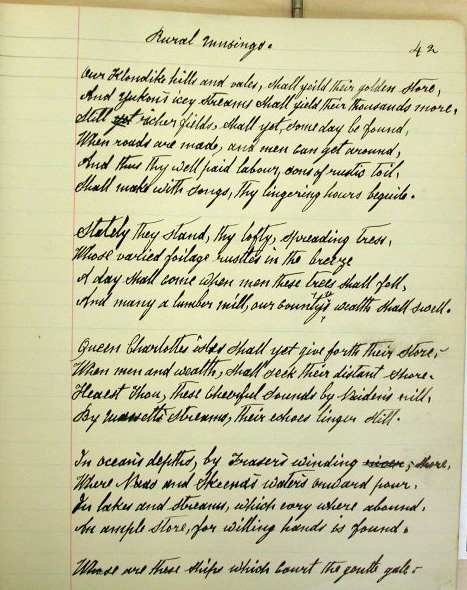 Rural Musings.
42
Our Klondike hills and vales, shall yeild their golden store,
And Yukon's icey streams shall yield their thousands more,
Still yet richer fields, shall yet, some day be found,
When roads are made, and men can get around,
And thus thy well paid labour, sons of rustic toil,
Shall make with songs, thy lingering hours beguile.
Stately they stand, thy lofty, spreading tress,
Whose varied foilage rustles in the breeze
A day shall come when men these trees shall fall,
And many a lumber mill, our wealth shall swell.
Queen Charlottes isles shall yet give forth their store,
When men and wealth, shall seek their distant shore.
Hearest Thou, these cheerful sounds by rill,
By streams, their echoes linger still.
In ocean's depths, by Fraser's winding river, shore,
Where and Skeena's waters onward pour,
In lakes and streams, which every where abound,
An ample store, for willing hands is found.
Whose are these ships which court the gentle gale-